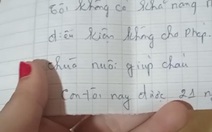 tôi không có khả năng n
điều kiện không cho phép.
chữa nuôi giúp cháu
con tôi nay được 21 n